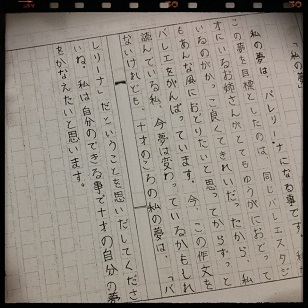 「私の夢」
私の夢は、バレリーナになる事です。私
この夢を目標としたのは、同じバレエスタジ
オにいるお姉さんがとてもゆうがにおどって
いるのがかっこ良くてきれいだったから。私
もあんな風におどりたいと思ってからずっと
バレエをがんばっています。今、この作文を
読んでいる私、今夢は変わっているかもしれ
ないけれども、十才のころの私の夢は、「バ
レリーナ」だということを思いだしてくださ
いね。私は自分のできる事で十才の自分の夢
をかなえたいと思います。